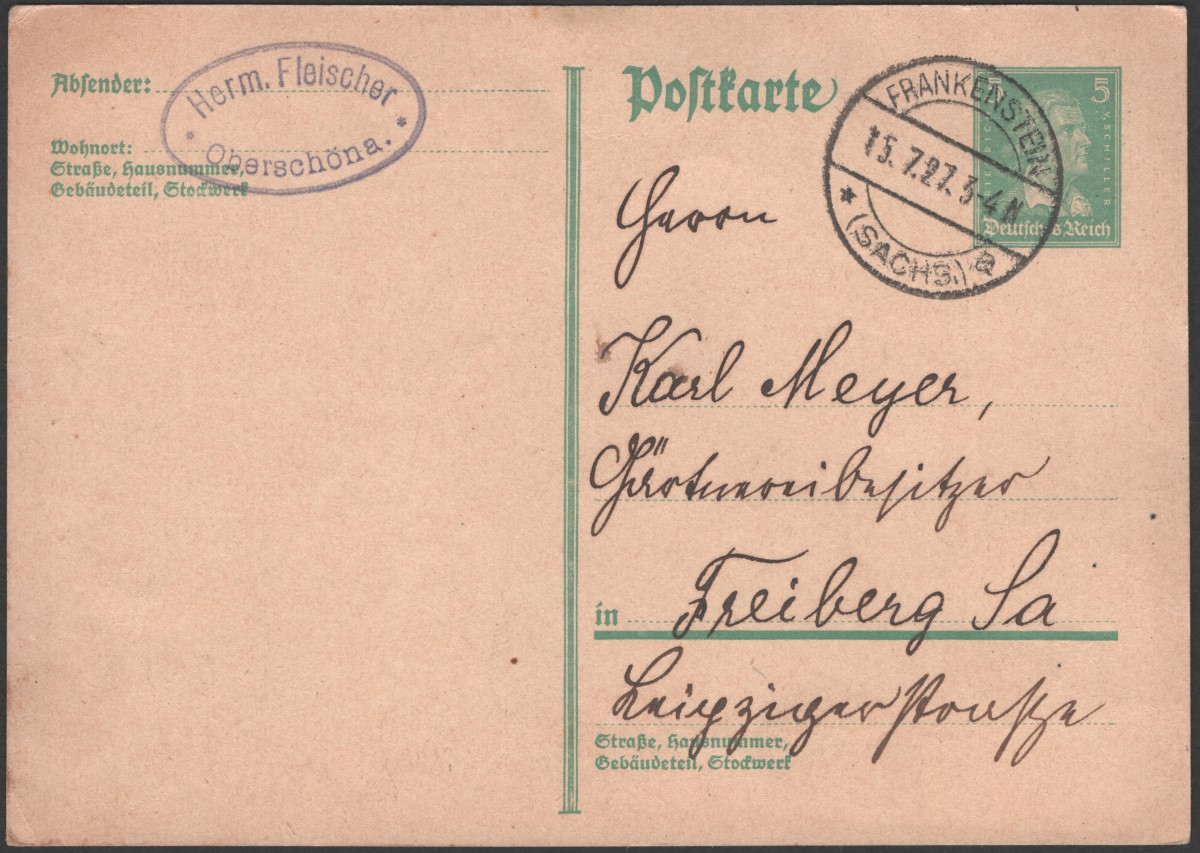 Absender:
Herm. Fleischer
Oberschöna.
Wohnort:
Straße, Hausnummer,
Gebäudeteil, Stockwerk
Postkarte
FRANKENSTEIN
15.7.27. 3-4 N
(SACHS.) a
5
FRIEDRICH V. SCHILLER
Deutsches Reich
Herrn
Karl Meyer,
Gärtnereibesitzer
in Freiberg Sa
Leipzigerstraße
Straße, Hausnummer,
Gebäudeteil, Stockwerk